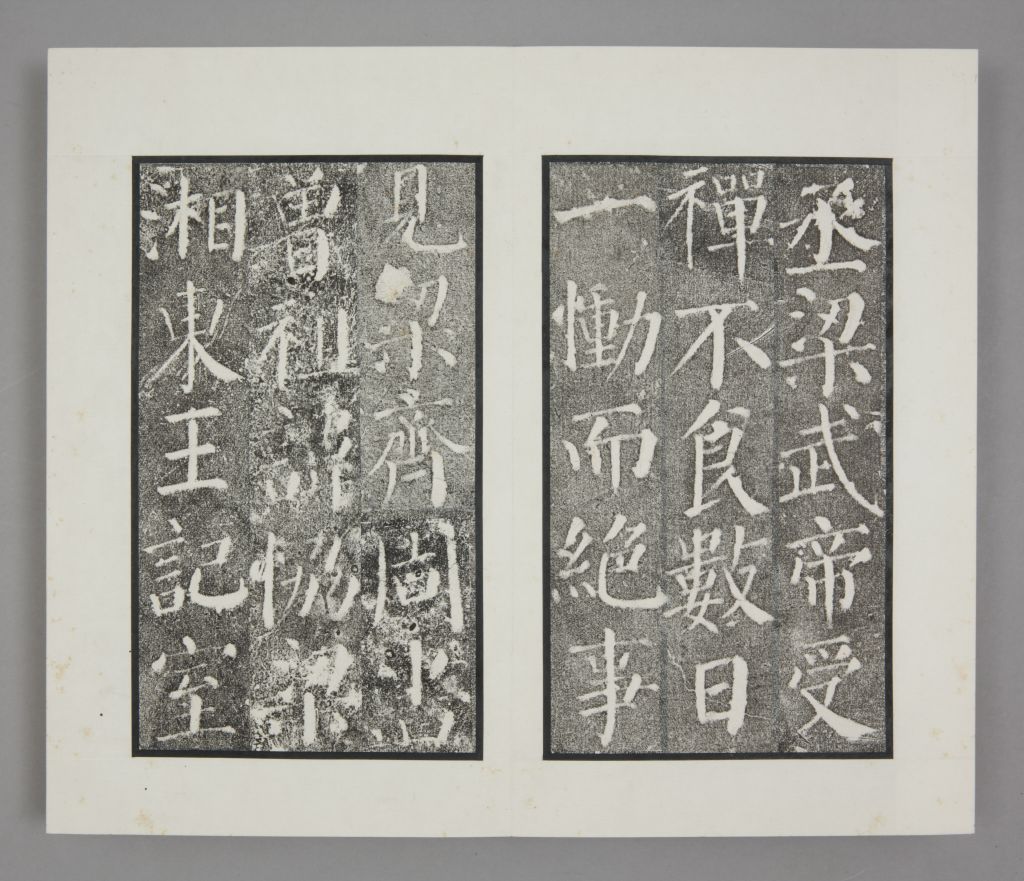 丞梁武帝受
禪不食數日
一慟而絶事
見梁齊周
曾祖諱恊梁
湘東王記室